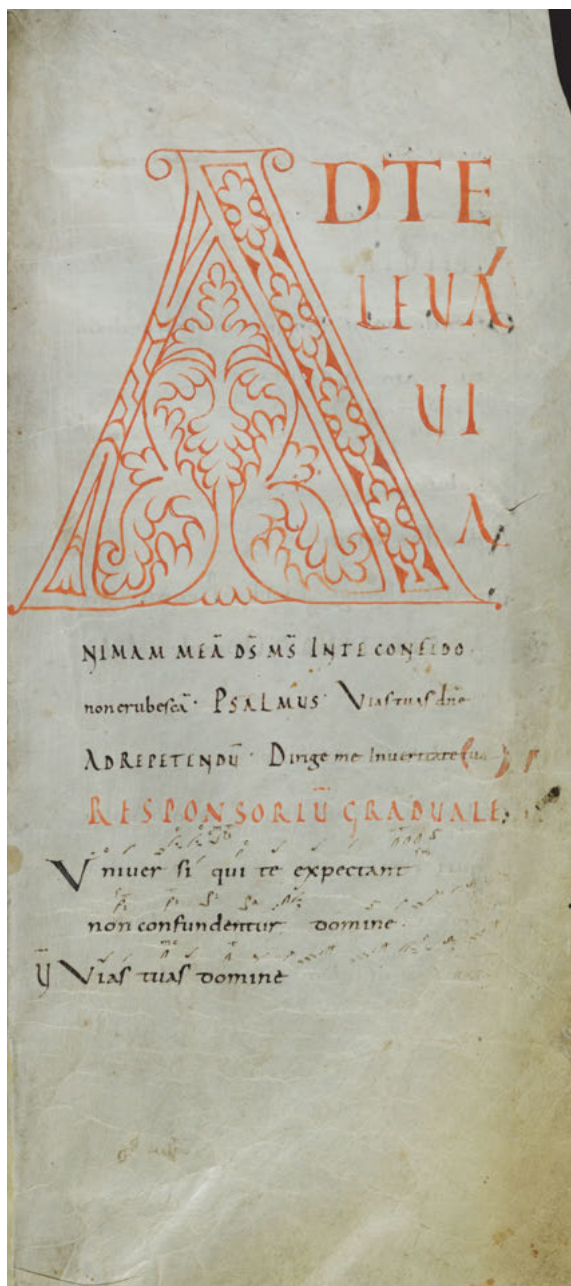 AD TE
LEVÁ
VI
A
NIMAM MEĀ DS̄ MS̄ IN TE CONFIDO
non erubescā · PSALMUS · Vias tuas dn̄e
AD REPETENDŪ · Dirige me In veritate tua
RESPONSORIŪ GRADUALE
Univer si qui te expectant
non confundentur domine ·
V̄ Vias tuas domine